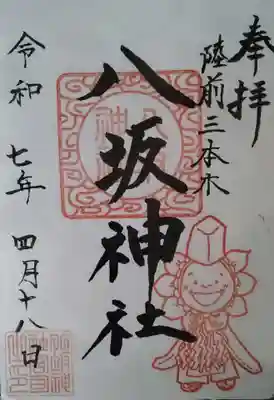 奉拝
陸前三本木
八坂神社
令和七年四月十八日